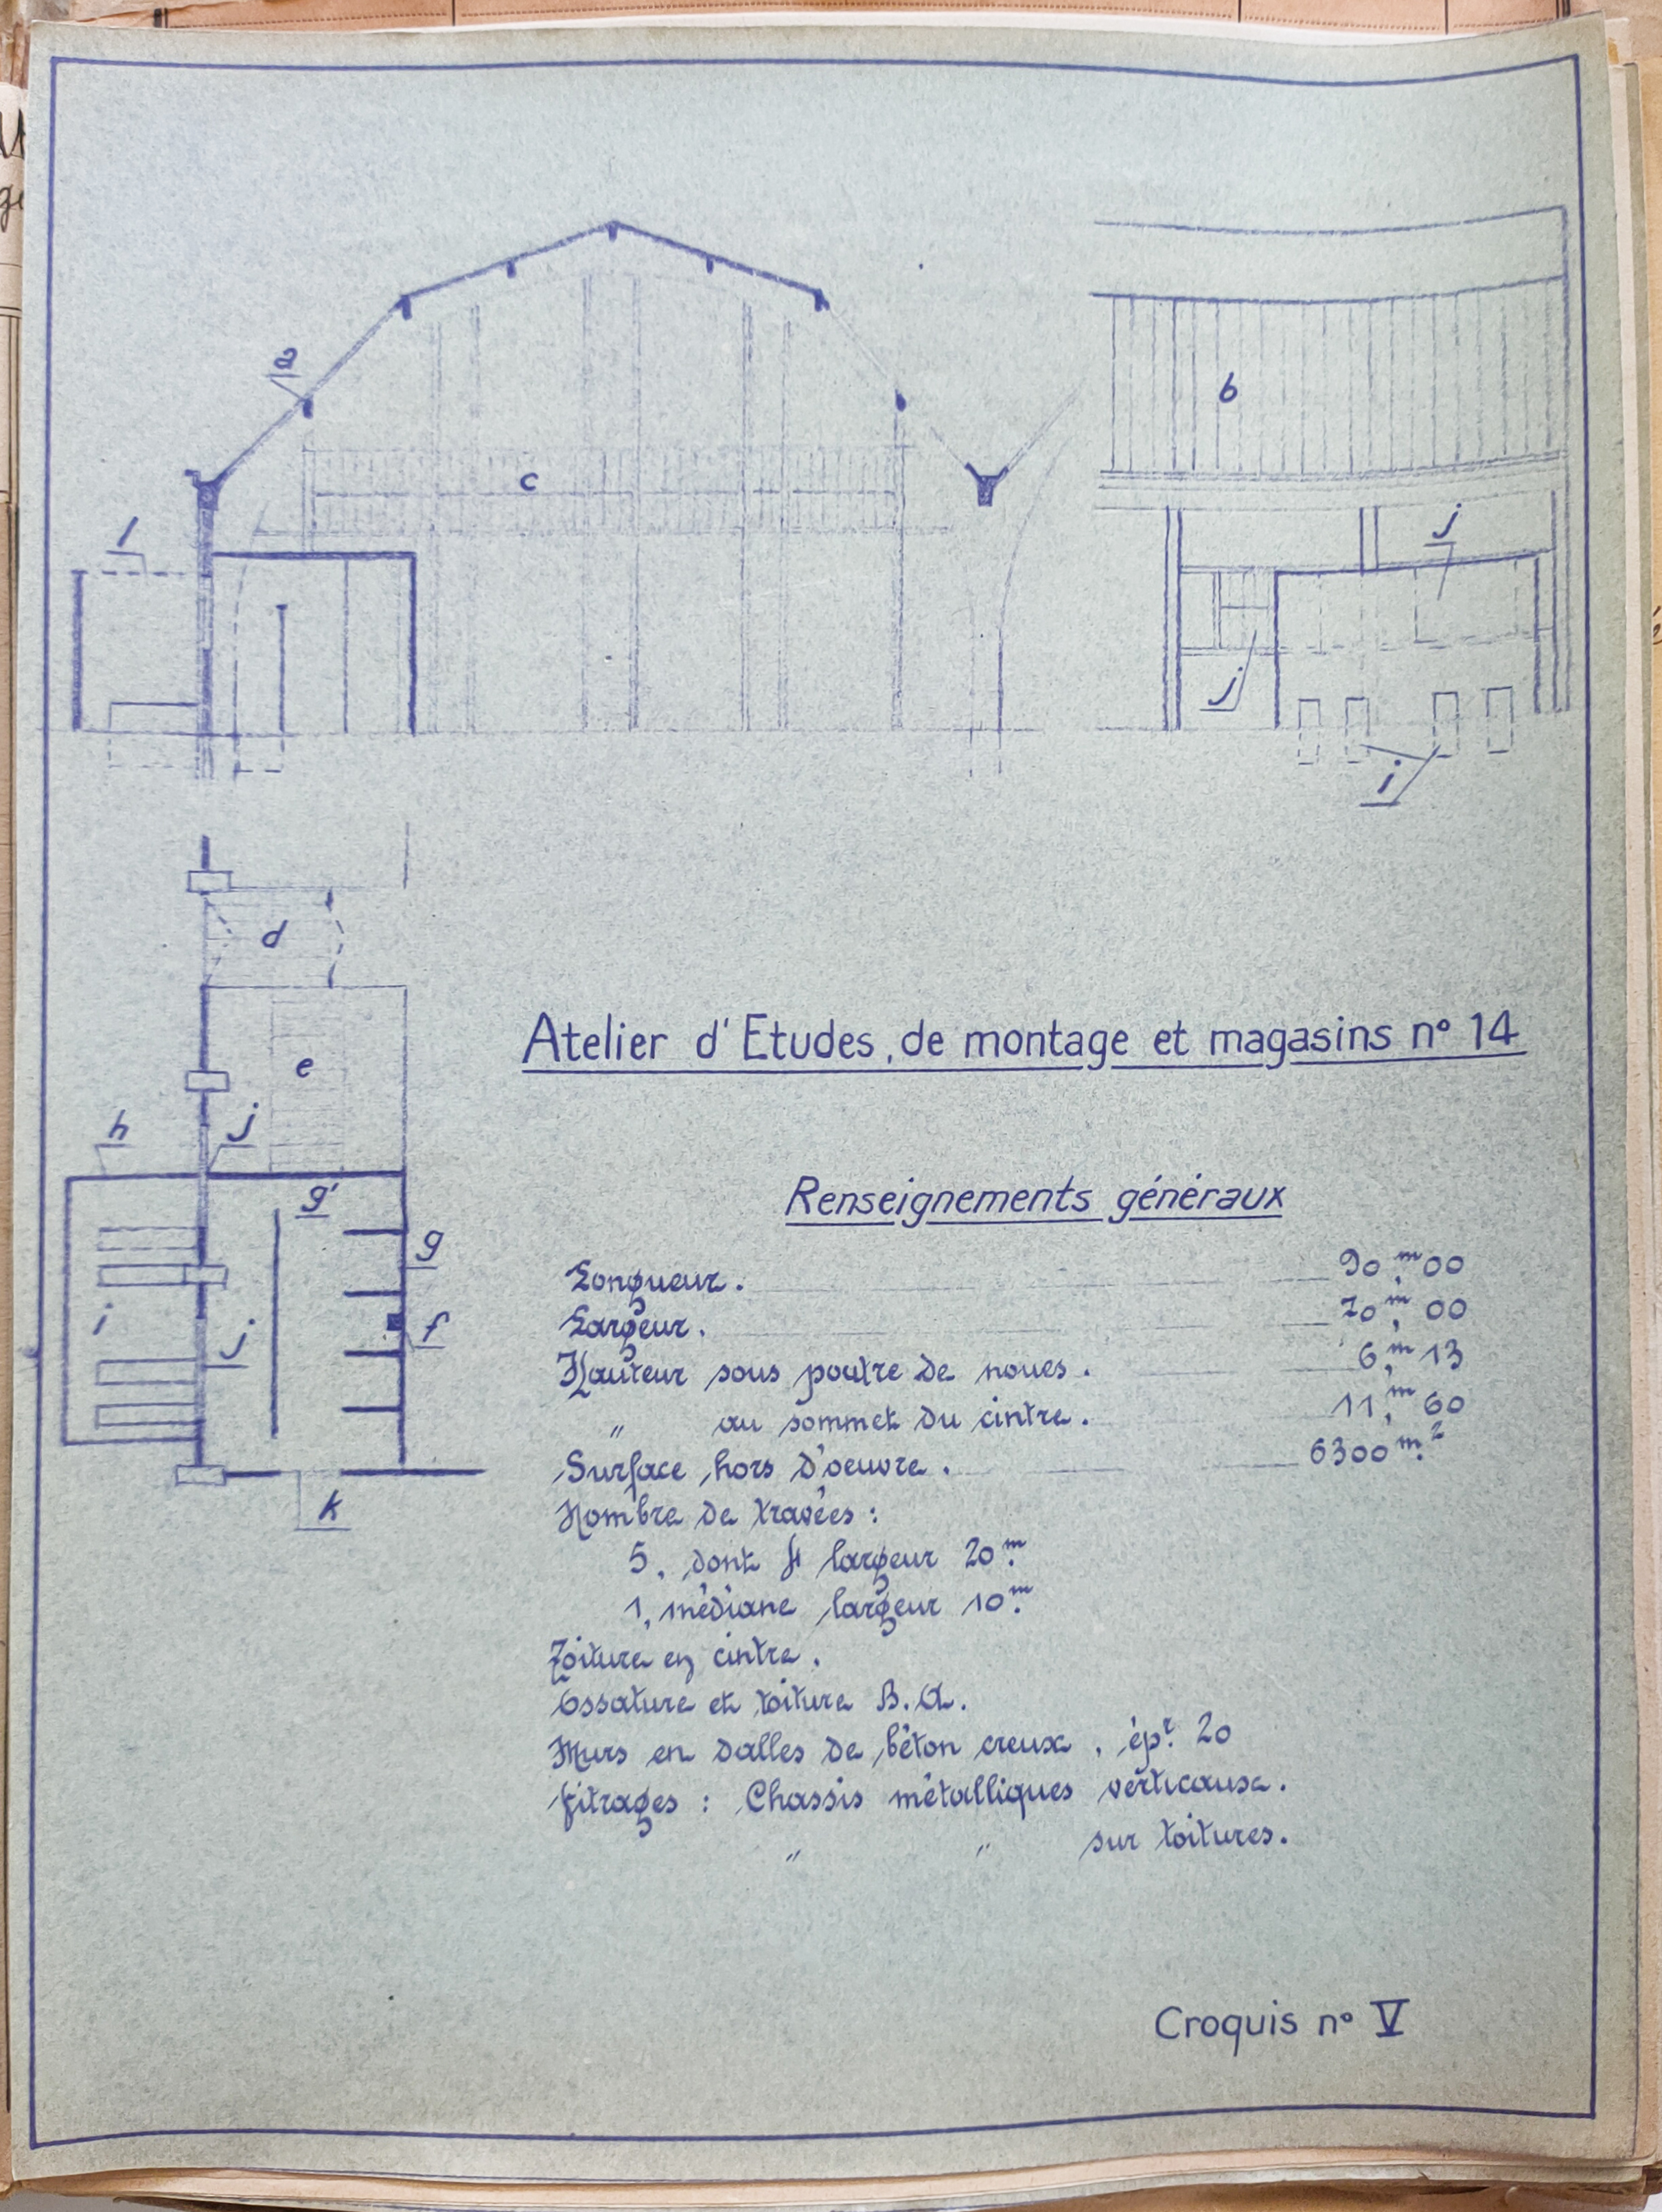 a
b
c
l
j
j
i
d
e
h
j
g'
g
i
j
f
k
Atelier d'Etudes, de montage et magasins n° 14
Renseignements généraux
Longueur. 90,ᵐ00
Largeur. 70,ᵐ00
Hauteur sous poutre de noues. 6,ᵐ13
" au sommet du cintre. 11,ᵐ60
Surface hors d'oeuvre. 6300 m.²
Nombre de travées :
5, dont 4 largeur 20.ᵐ
1, médiane largeur 10.ᵐ
Toiture en cintre.
Ossature et toiture B.A.
Murs en dalles de béton creux, épʳ. 20
Vitrages : Chassis métalliques verticaux.
" " sur toitures.
Croquis n° V